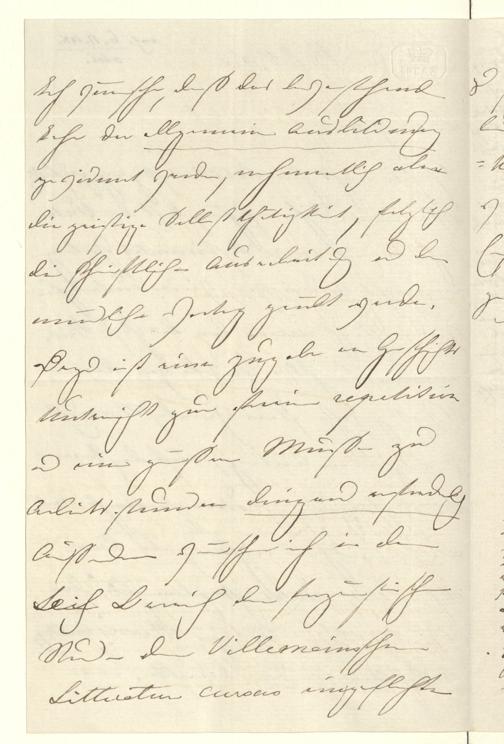 Ich wünsche, daß das bevorstehende
Jahr der allgemeinen Ausbildung
gewidmet werde, namentlich aber
die geistige Selbstthätigkeit, folglich
die schriftliche Ausarbeitung und der
mündliche Vortrag geübt werde.
Dazu ist eine Zugabe an Geschichts
Unterricht zur freien repetition
und eine größere Muße zu
Arbeitsstunden dringend nothwendig
Außerdem wünsche ich in den
Bereich der französischen
der Villemainsche
Litteratur cursus eingeflochten